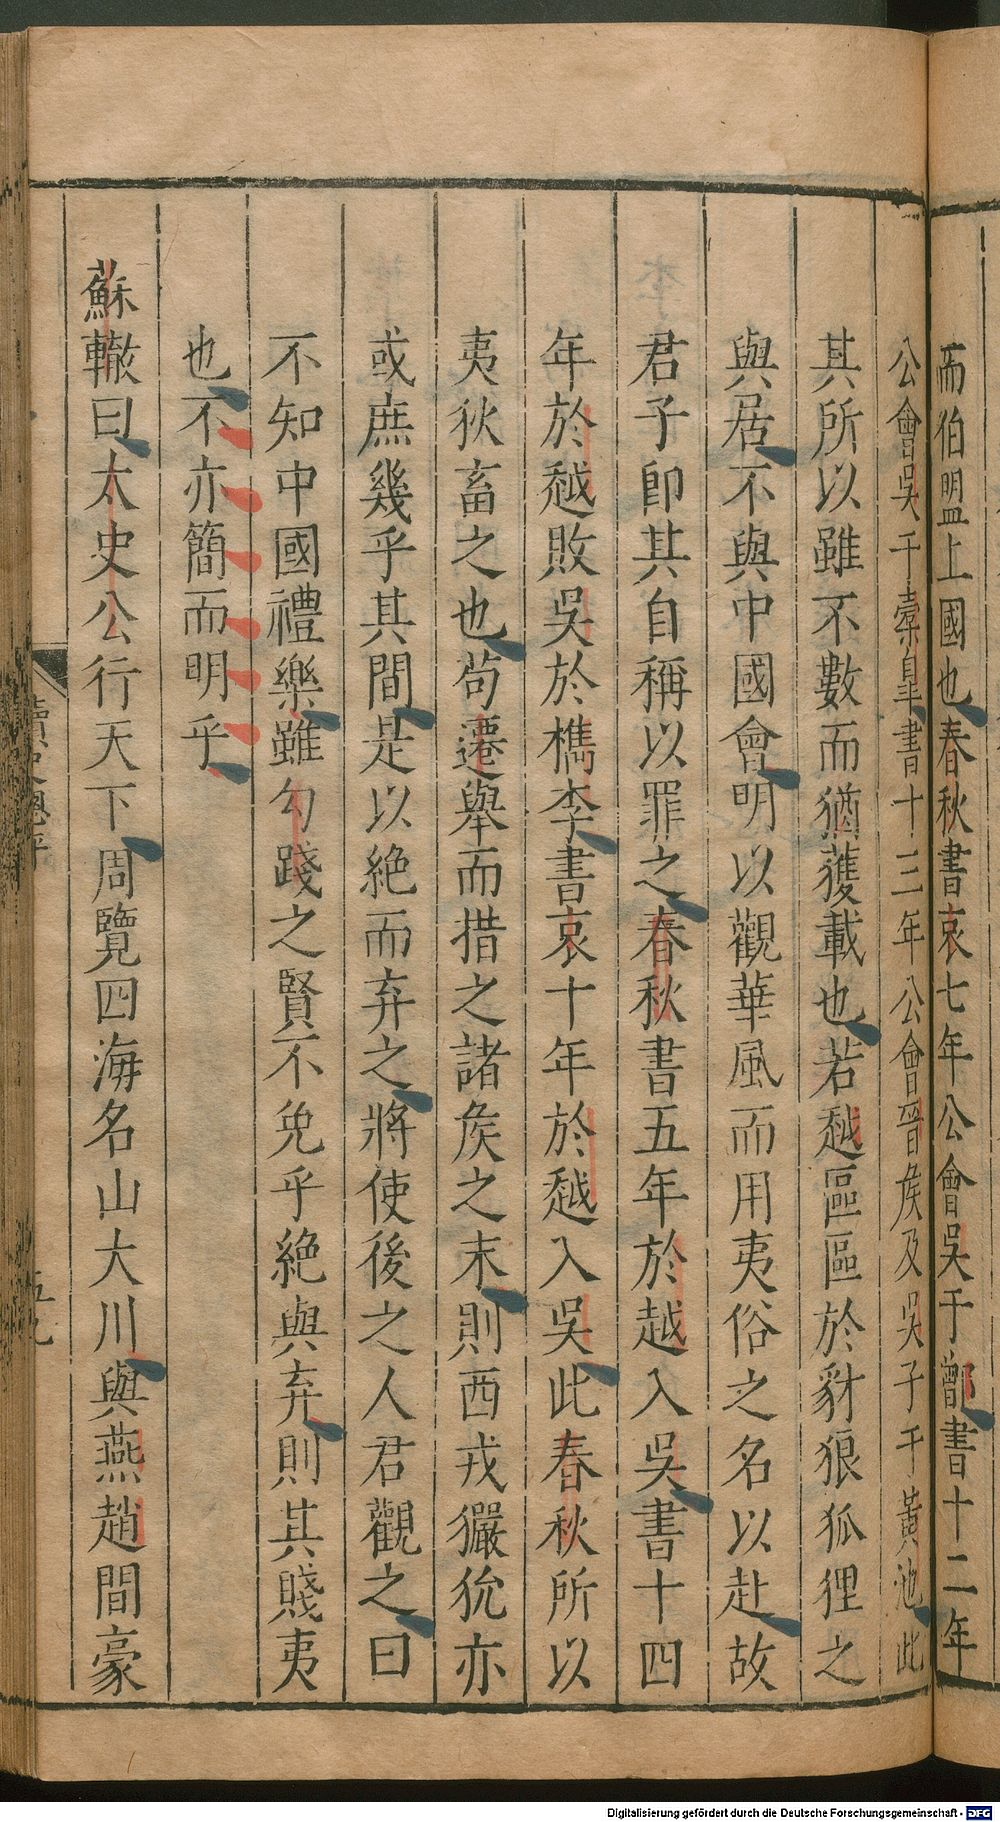 而伯盟上國也春秋書哀七年公會吳于鄫書十二年
公會吳于橐皐書十三年公會晉矦及吳子于黃池此
其所以雖不數而猶獲載也若越區區於豺狼狐狸之
與居不與中國會明以觀華風而用夷俗之名以赴故
君子卽其自稱以罪之春秋書五年於越入吳書十四
年於越敗吳於檇李書哀十年於越入吳此春秋所以
夷狄畜之也苟遷舉而措之諸矦之末則西戎玁狁亦
或庶幾乎其間是以絶而弃之將使後之人君觀之曰
不知中國禮樂雖勾踐之賢不免乎絶與弃則其賤夷
也不亦簡而明乎
蘇轍曰太史公行天下周覽四海名山大川與燕趙間豪
讀史總評
五九
Digitalisierung gefördert durch die Deutsche Forschungsgemeinschaft - DFG